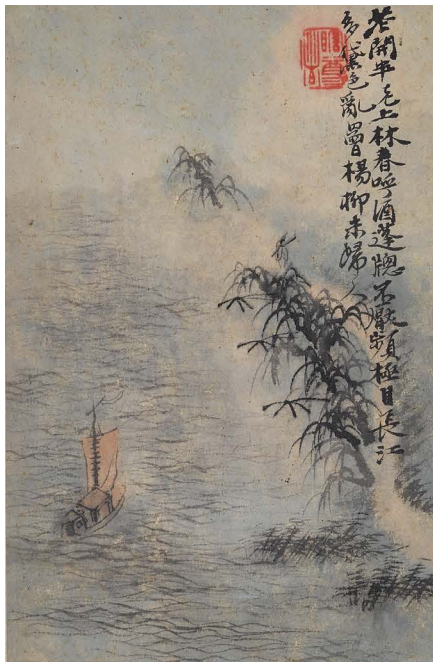 花開半上林春呼酒蓬牕不厭頻極目長江
多黛色亂罾楊柳未歸人